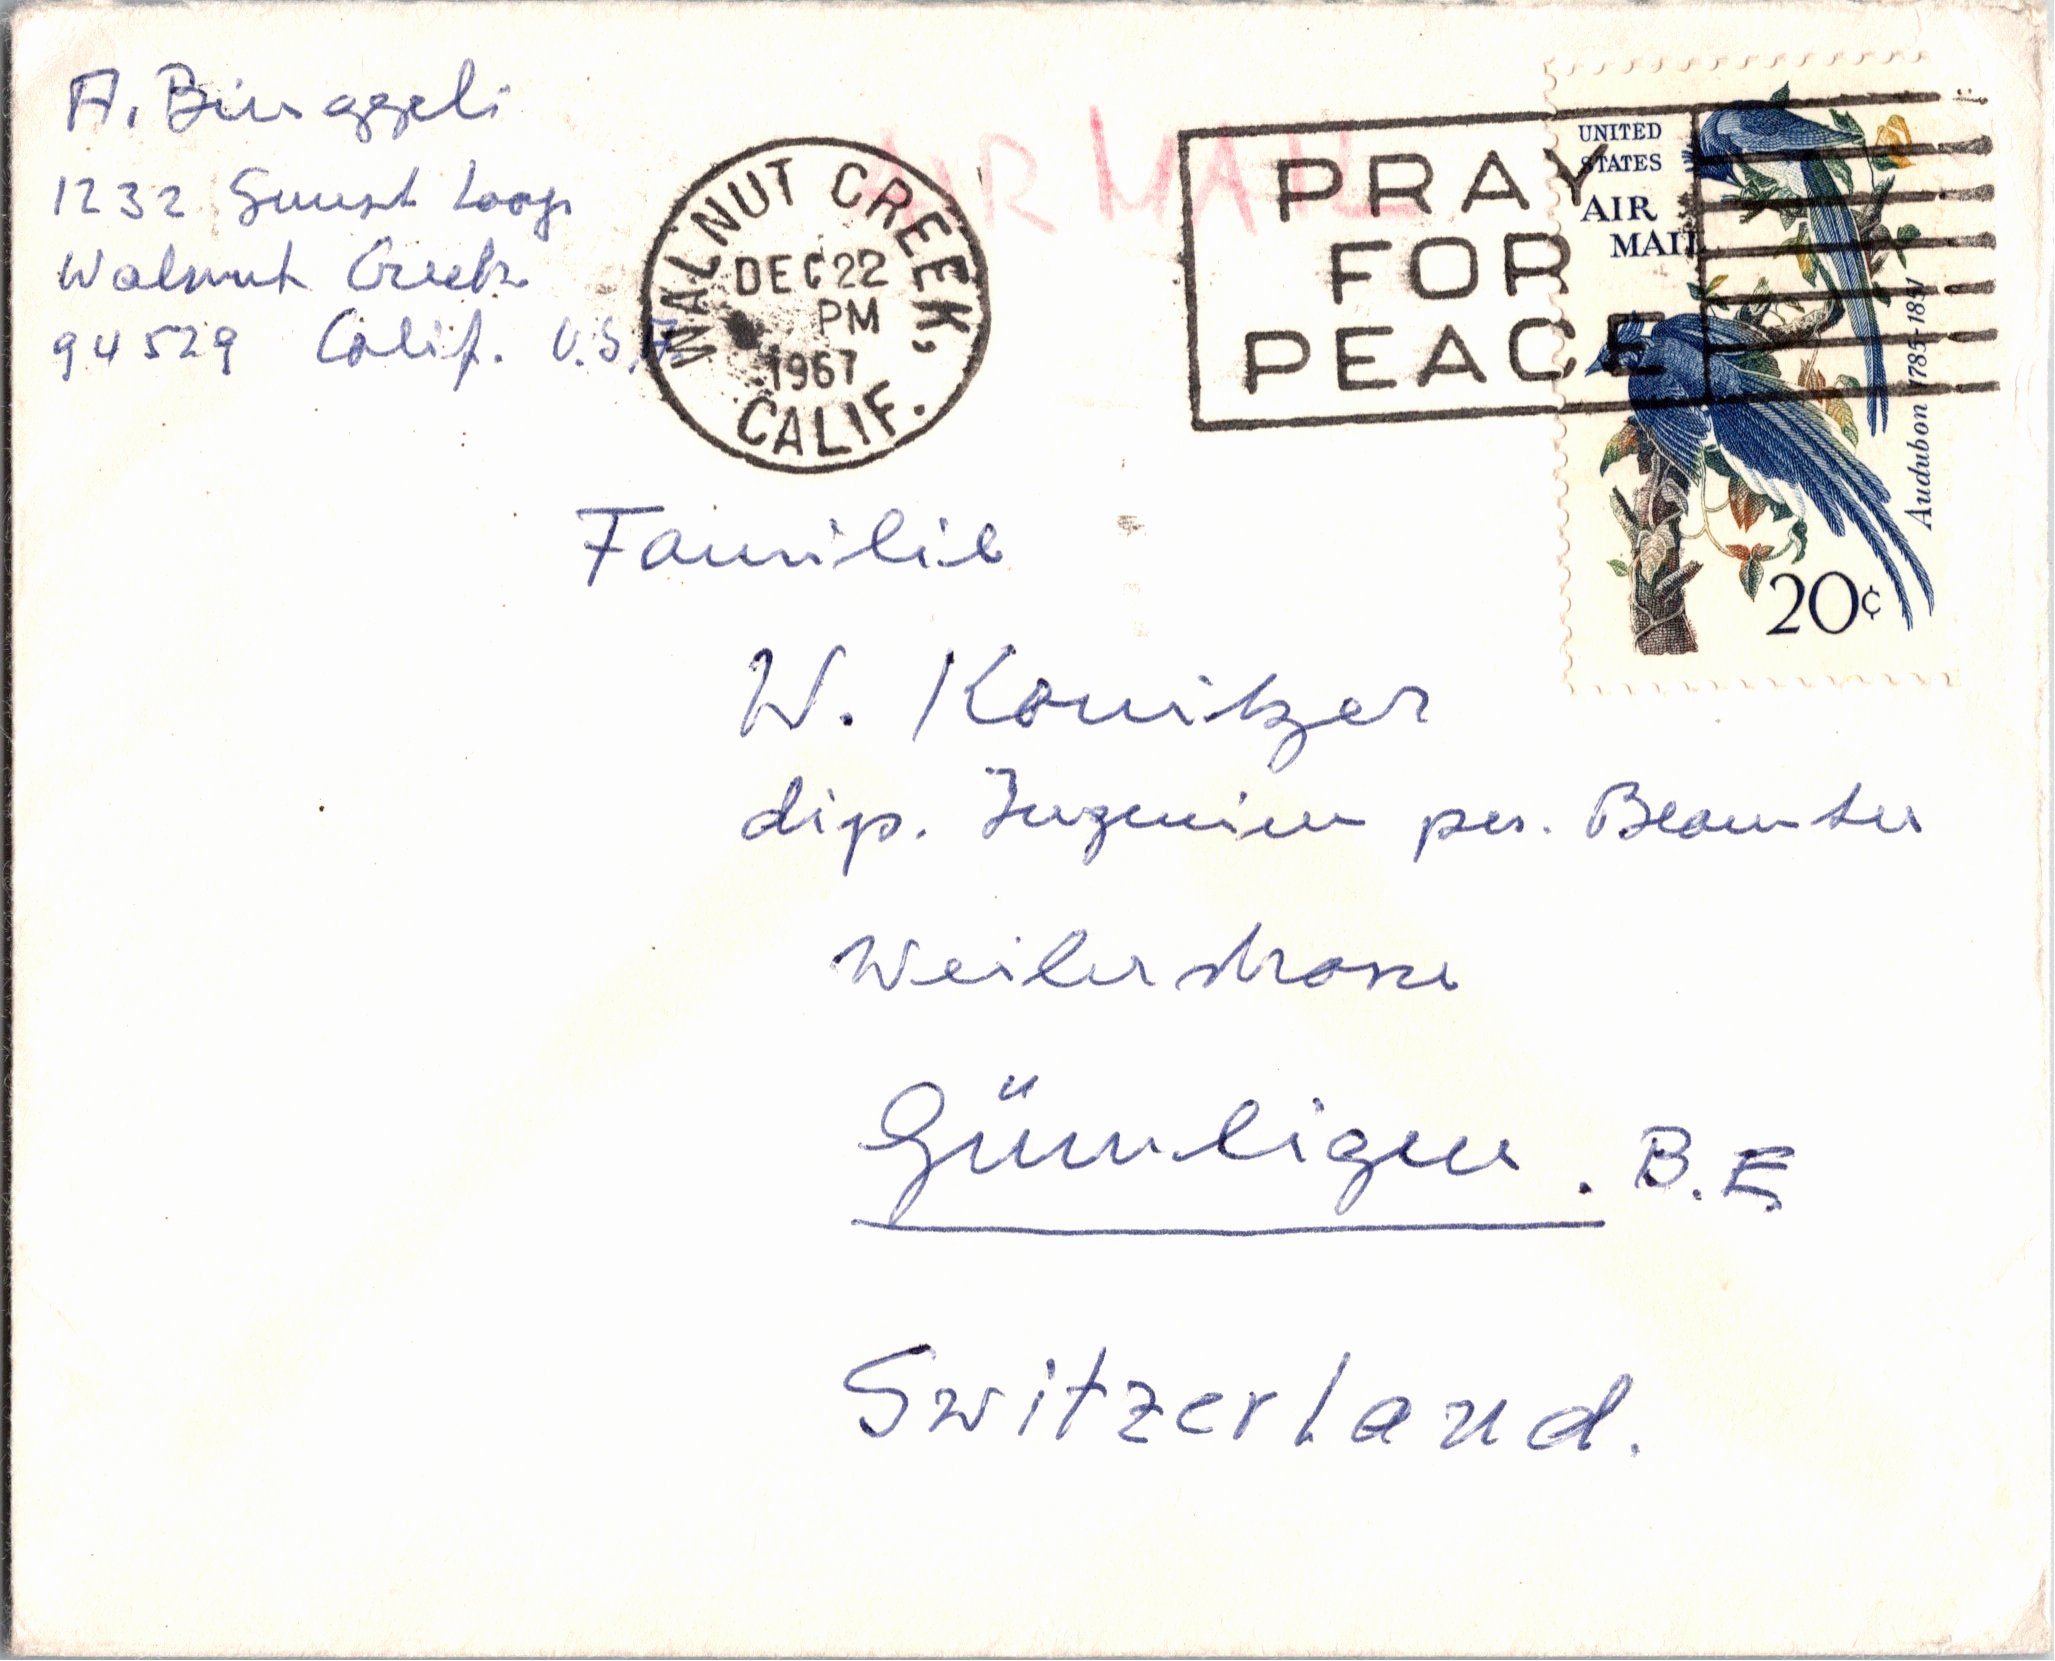 A. Binggeli
1232 Sunset Loop
Walnut Creek
94529 Calif. U.S.A.
AIR MAIL
WALNUT CREEK,
DEC 22
PM
1967
CALIF.
PRAY
FOR
PEACE
UNITED
STATES
AIR
MAIL
Audubon 1785-1851
20¢
Familie
W. Konitzer
dip. Ingenieur pens. Beamter
Weilerstrasse
Gümligen. B.E.
Switzerland.